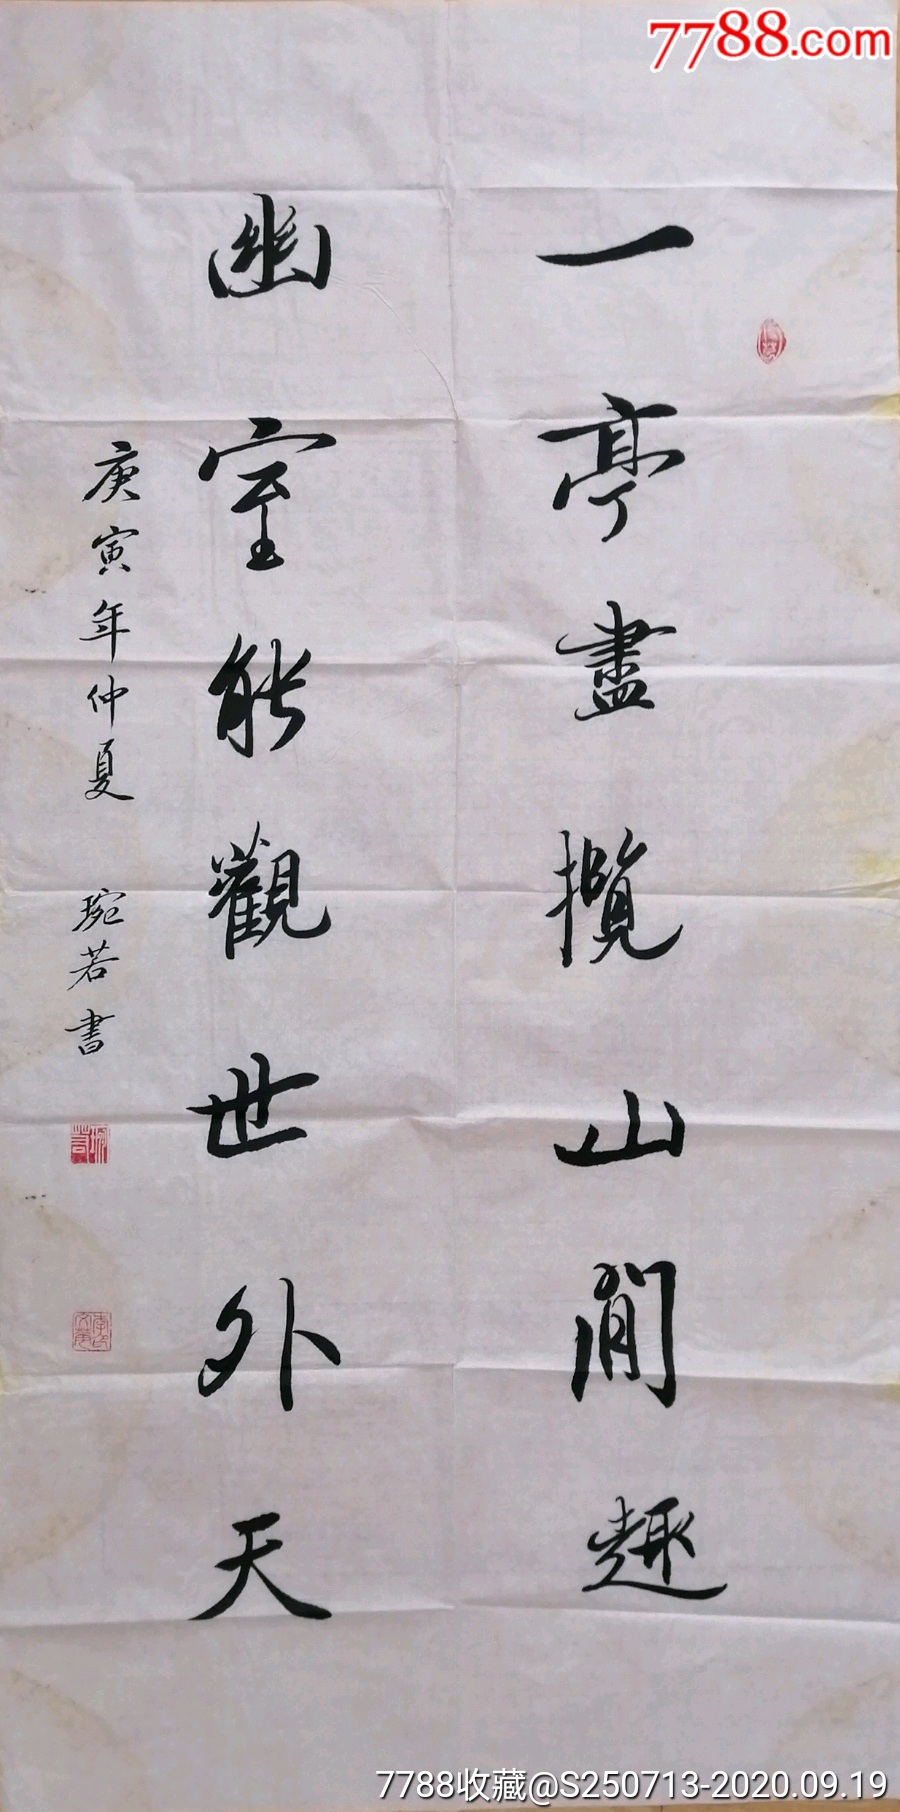 7788.com
一亭盡攬山間趣
幽室能觀世外天
庚寅年仲夏 琬若書
琬若
7788收藏@S250713-2020.09.19